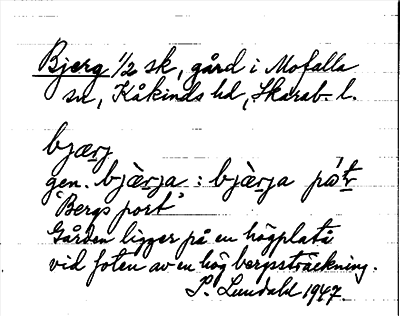 Bjerg 1/2 sk, gård i Mofalla
sn, Kåkinds hd, Skarab. l.
bjærj
gen. bjæ̀rja : bjæ̀rja på't
"Bergs port"
Gården ligger på en högplatå
vid foten av en hög bergsträckning.
P. Lundahl 1947.